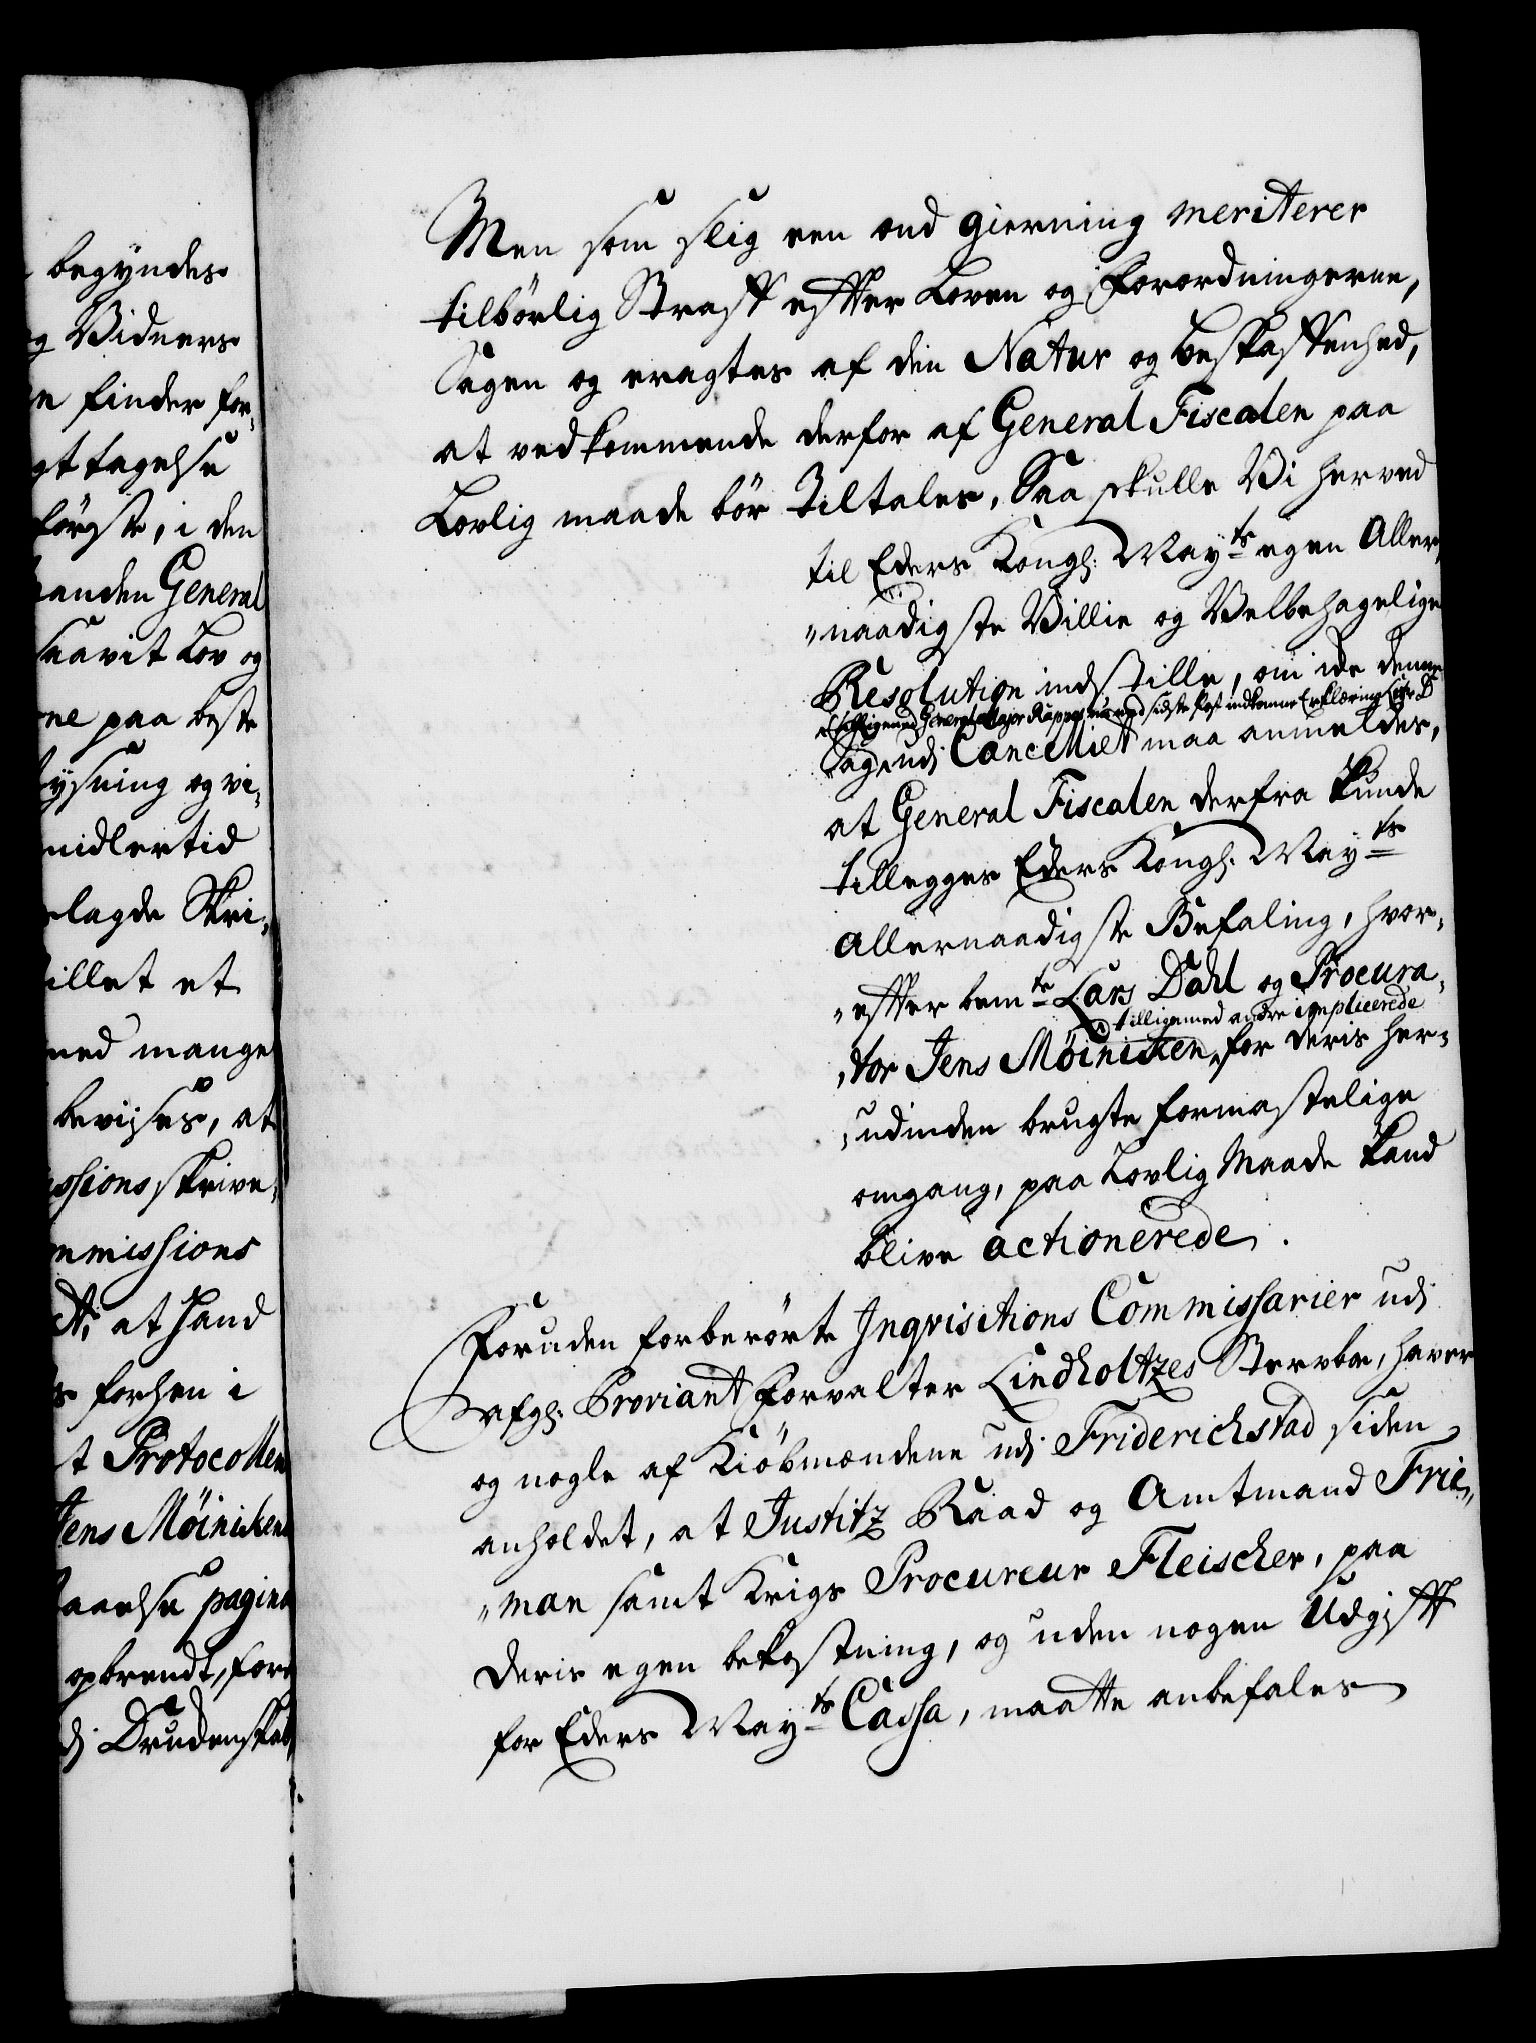 begyndes
og Vidners
finder for„
gttagelse
förste, i den
anden General
saavit Lov og
ne paa beste
lysning og vi„
midlertid
lagde Skri„
illet et
med mange
bevises, at
ssions skrive„
mmissions
at hand
forhen i
t Protocollen
Jens Möinichen
aaelse pagina
opbrendt, fore
di Drudenskab
Men som slig een ond gierning meriterer
tilbörlig Straff effter Loven og Forordningerne,
Sagen og eragtes af den Natur og beskaffenhed,
at vedkommende derfor af General Fiscalen paa
Lovlig maade bör Tiltales, Saa skulle Vi herved
til Eders Kongl: Mayts egen Aller„
„naadigste Villie og Velbehagelige
Resolution indstille, om ide denne
tilligemed General Major Rappes nu med sidste Post indkomne Erklæring Litr B
Sag udi Cancelliet maa anmeldes,
at General Fiscalen derfra kunde
tillegges Eders Kongl: Mayts
allernaadigste Befaling, hvor„
„effter bemte Lars Dahl og Procura„
tilligemed andre implicerede
„tor Jens Möinichen, for deris her„
„udinden brugte formastelige
omgang, paa Lovlig Maade kand
blive actionerede.
Foruden forberörte Inqvisitions Commissarier udi
Sr afgl: Proviant Forvalter Lindholtzes Sterboe, haver
og nogle af Kiöbmændene udi Friderichstad siden
anholdet, at Justitz Raad og Amtmand Frie„
„man samt Krigs Procureur Fleischer, paa
deris egen bekostning, og uden nogen Udgifft
for Eders Mayts Cassa, maatte anbefales